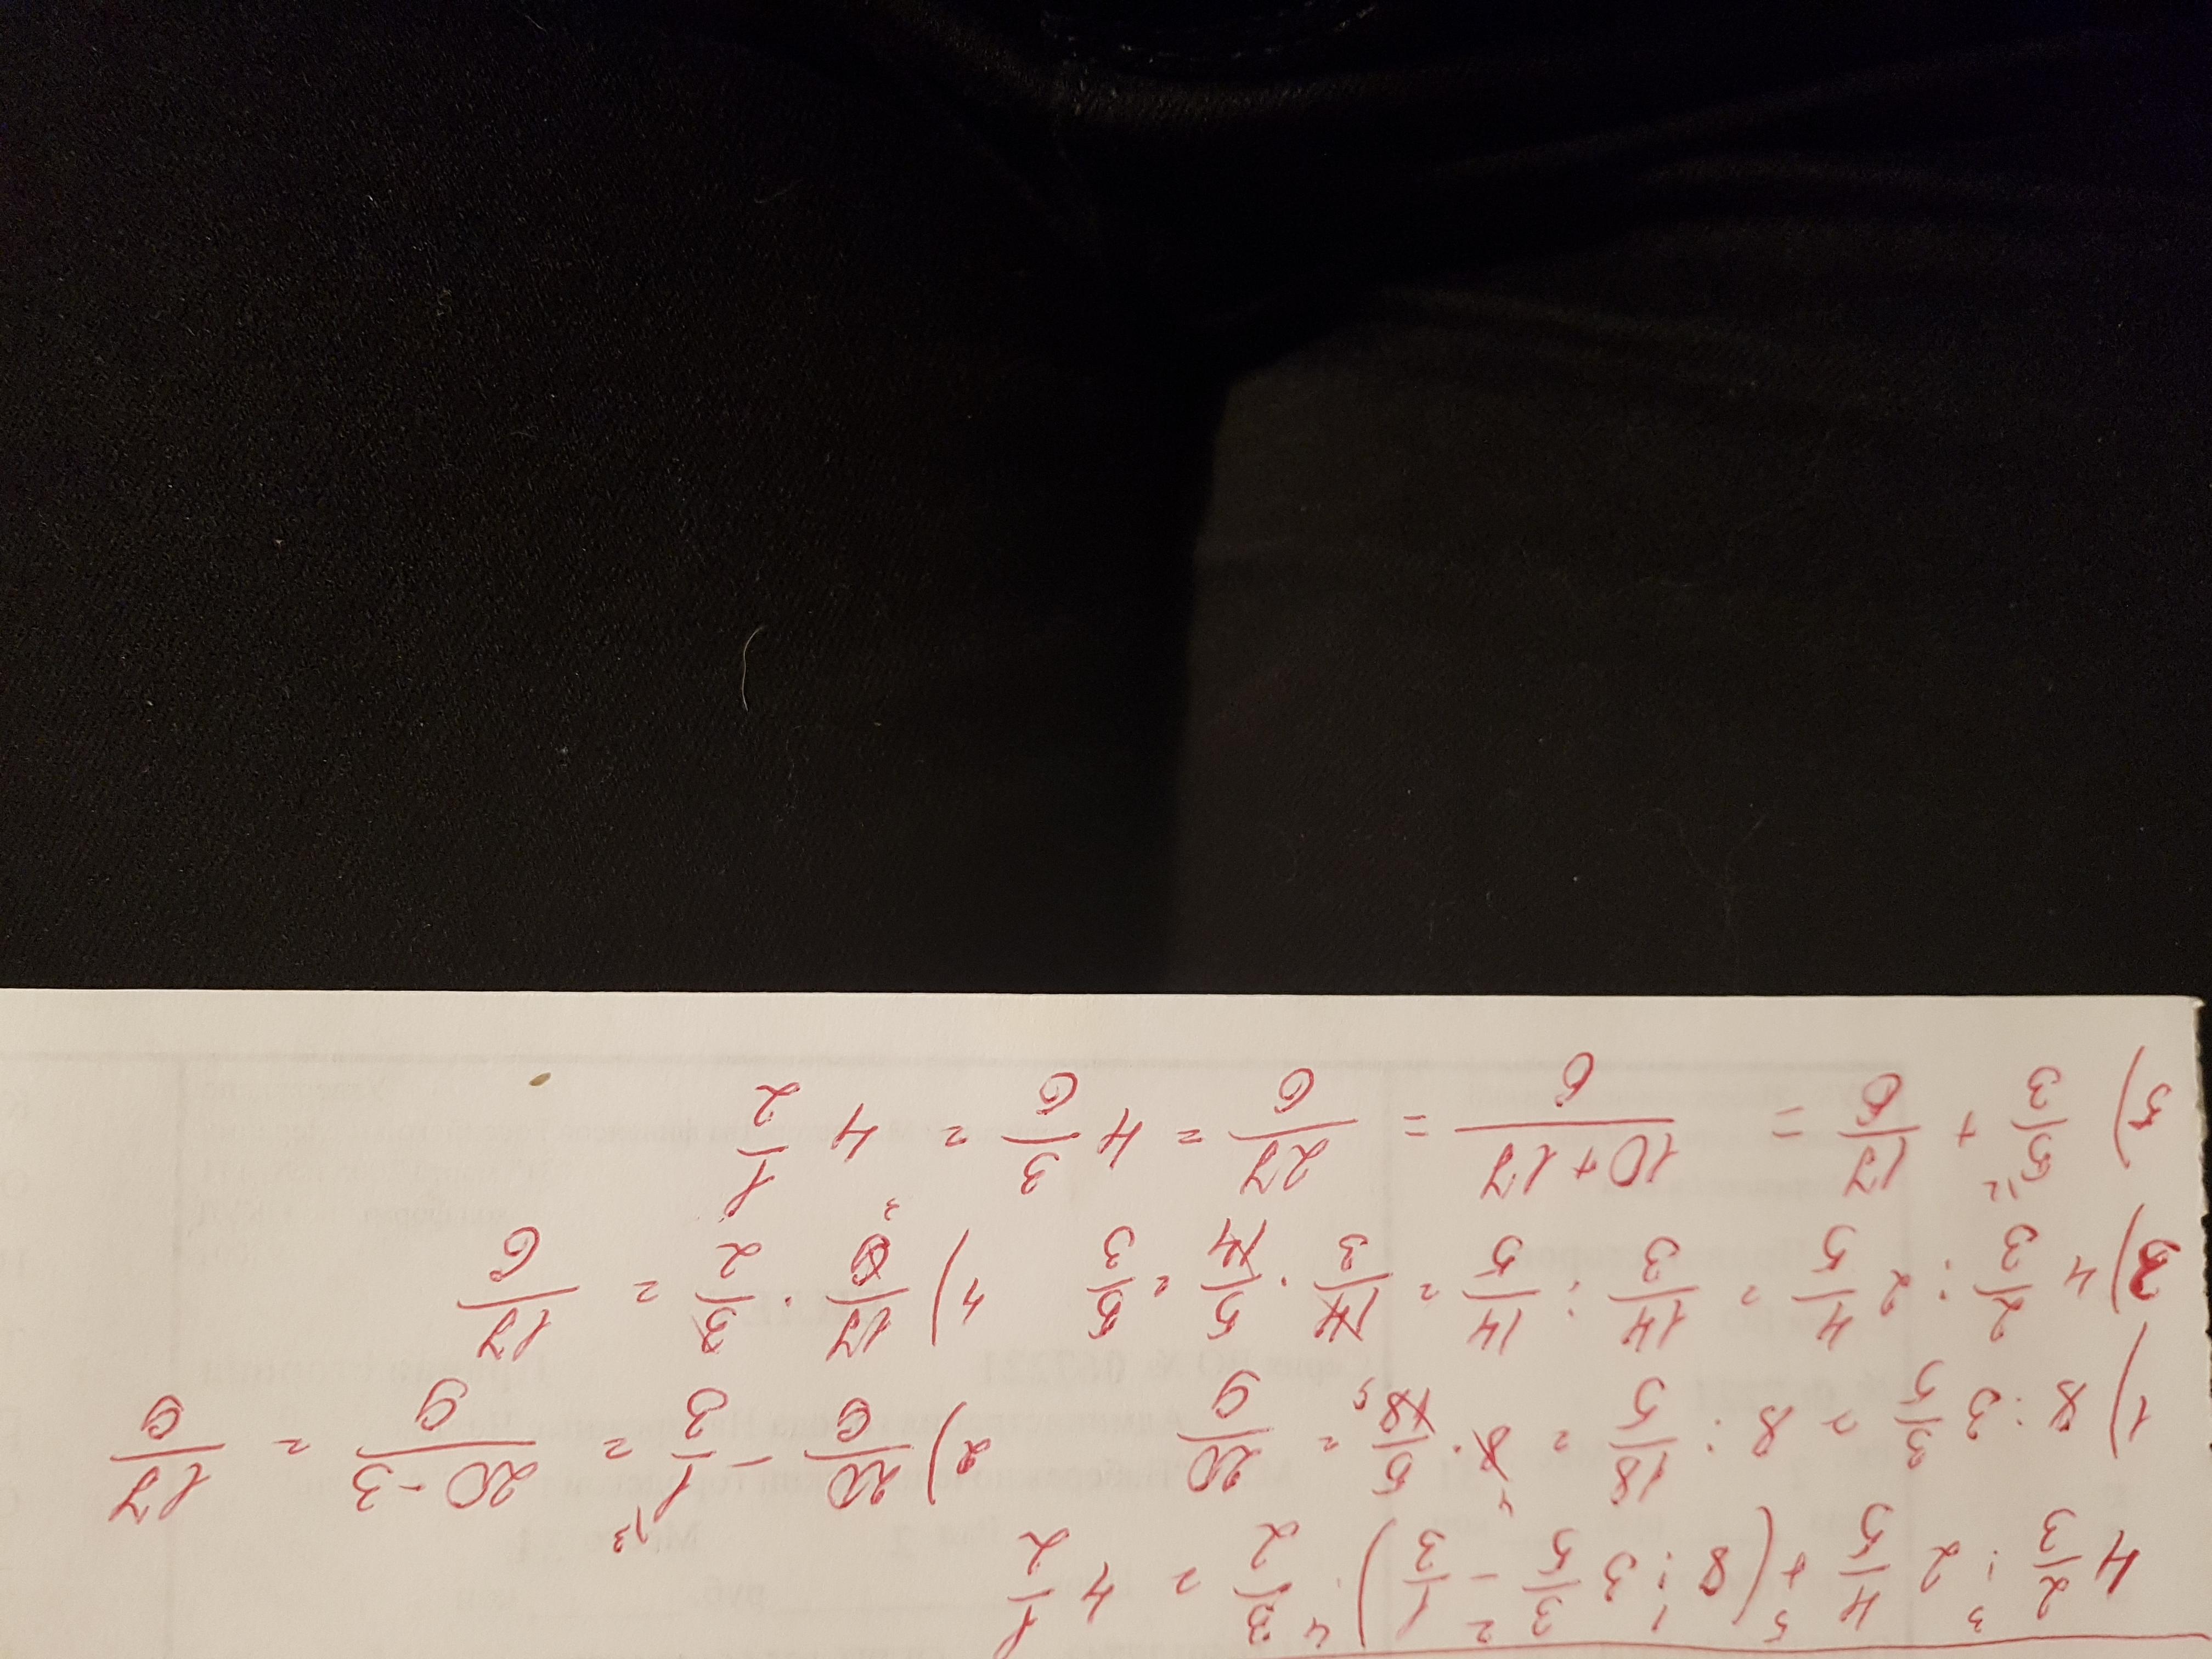 4 2/3 : 2 4/5 + (8 : 3 3/5 - 1/3) · 3/2 = 4 1/2
1) 8 : 3 3/5 = 8 : 18/5 = 8 · 5/18 = 20/9 2) 20/9 - 1/3 = 20-3/9 = 17/9
3) 4 2/3 : 2 4/5 = 14/3 : 14/5 = 14/3 · 5/14 = 5/3 4) 17/9 · 3/2 = 17/6
5) 5/3 + 17/6 = 10+17/6 = 27/6 = 4 3/6 = 4 1/2